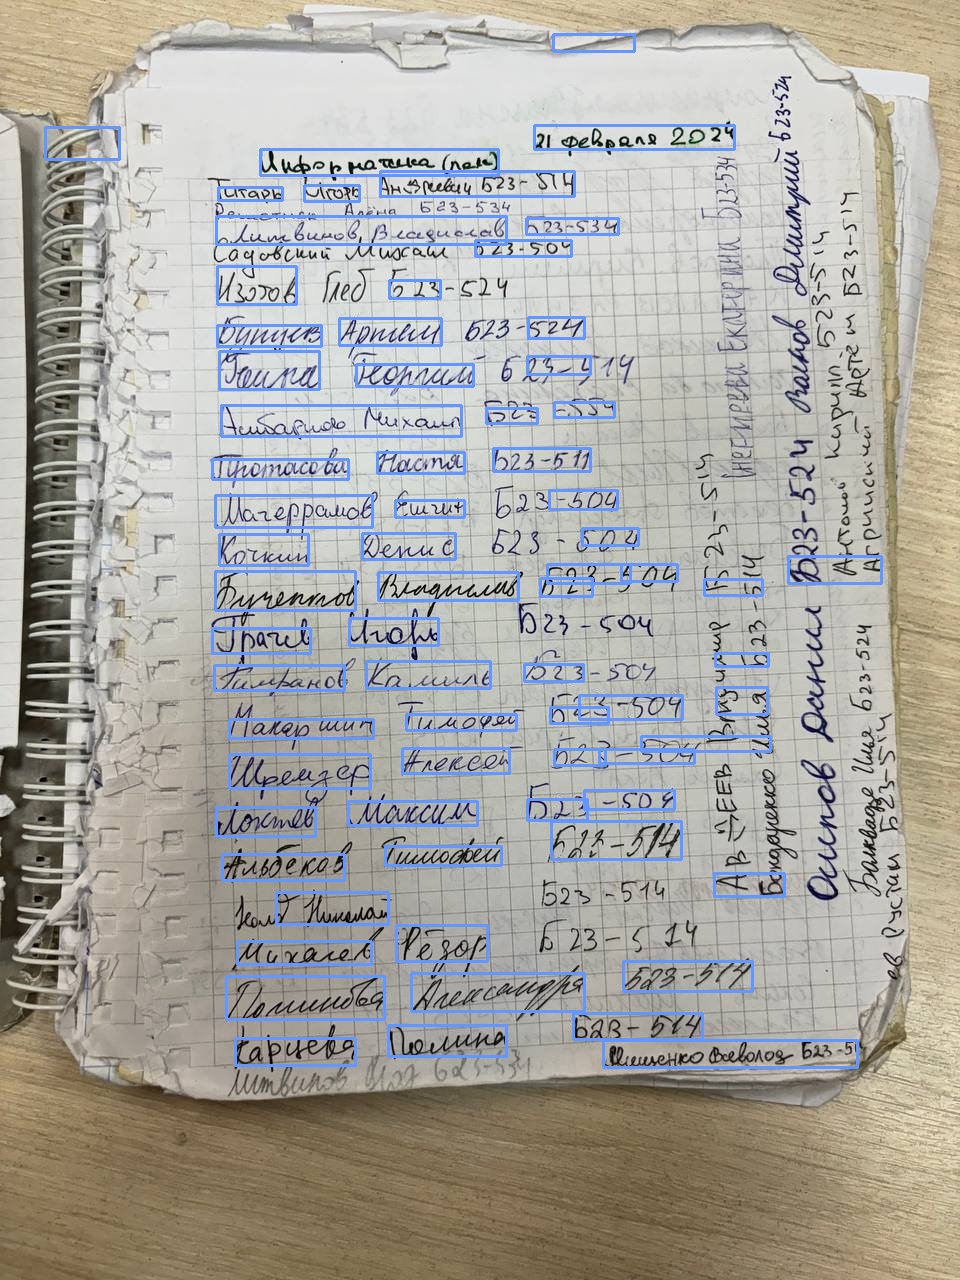 21 февраля 2024
Информатика (пакс)
Титарь Игорь Андреевич Б23-514
Алёна Б23-534
Литвинов Владислав Б23-534
Садовский Михаил Б23-504
Изотов Глеб Б23-524
Артем Б23-524
Георгий Б23-514
Михаил Б23-554
Протасова Настя Б23-511
Магеррамов Ельчин Б23-504
Кочкин Денис Б23-504
Владислав Б23-504
Грачев Игорь Б23-504
Тимранов Камиль Б23-504
Макаршин Тимофей Б23-504
Шремзер Алексей Б23-504
Локтев Максим Б23-504
Альбеков Тимофей Б23-514
Николай Б23-514
Михалев Фёдор Б23-514
Полина Александра Б23-514
Карцева Полина Б23-514
Мищенко Всеволод Б23-51
Литвинов Влад Б23-534
Авдеев Владимир Б23-514
Бондаренко Илья Б23-514
Екатерина Б23-534
Осипов Данил Б23-524 Волков Дмитрий Б23-524
Антомой Кирилл Б23-514
Артём Б23-514
Илья Б23-524
Рустам Б23-514